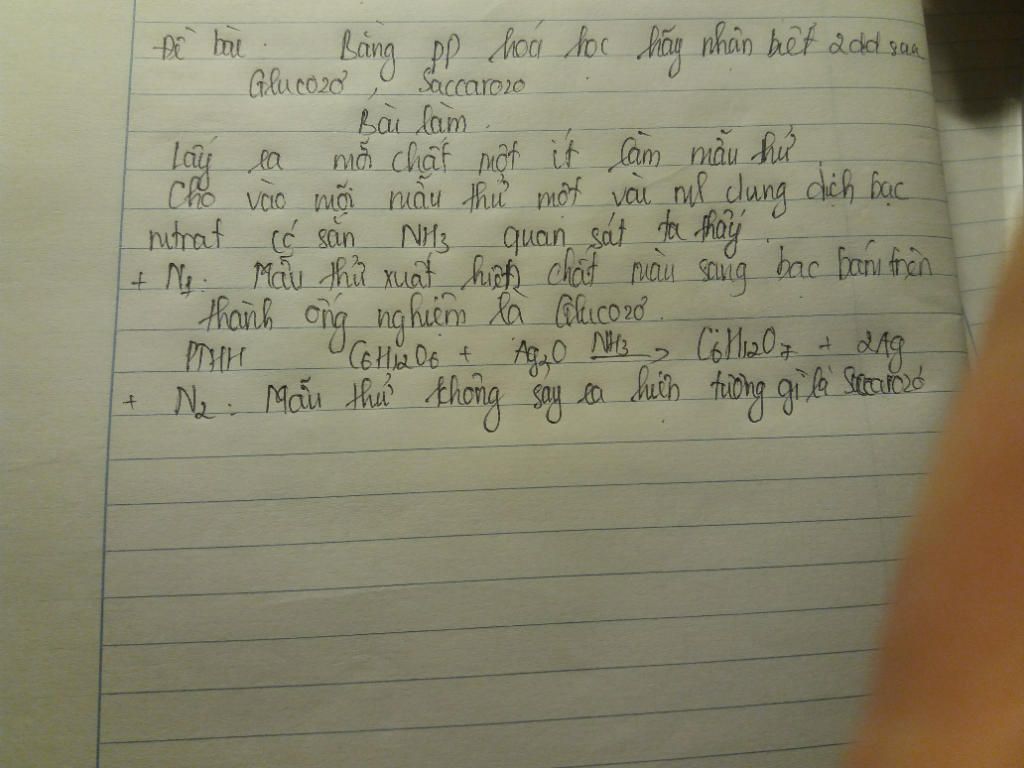 Đề bài. Bằng pp hoá học hãy nhận biết 2dd sau
Glucozơ, Saccarozo
Bài làm.
Lấy ra mỗi chất một ít làm mẫu thử.
Cho vào mỗi mẫu thử một vài ml dung dịch bạc
nitrat có sẵn NH3 quan sát ta thấy
+ N1. Mẫu thử xuất hiện chất màu sang bạc bám trên
thành ống nghiệm là Glucozơ.
PTHH C6H12O6 + Ag2O NH3→ C6H12O7 + 2Ag
+ N2: Mẫu thử không say ra hiện tượng gì là Saccarozơ